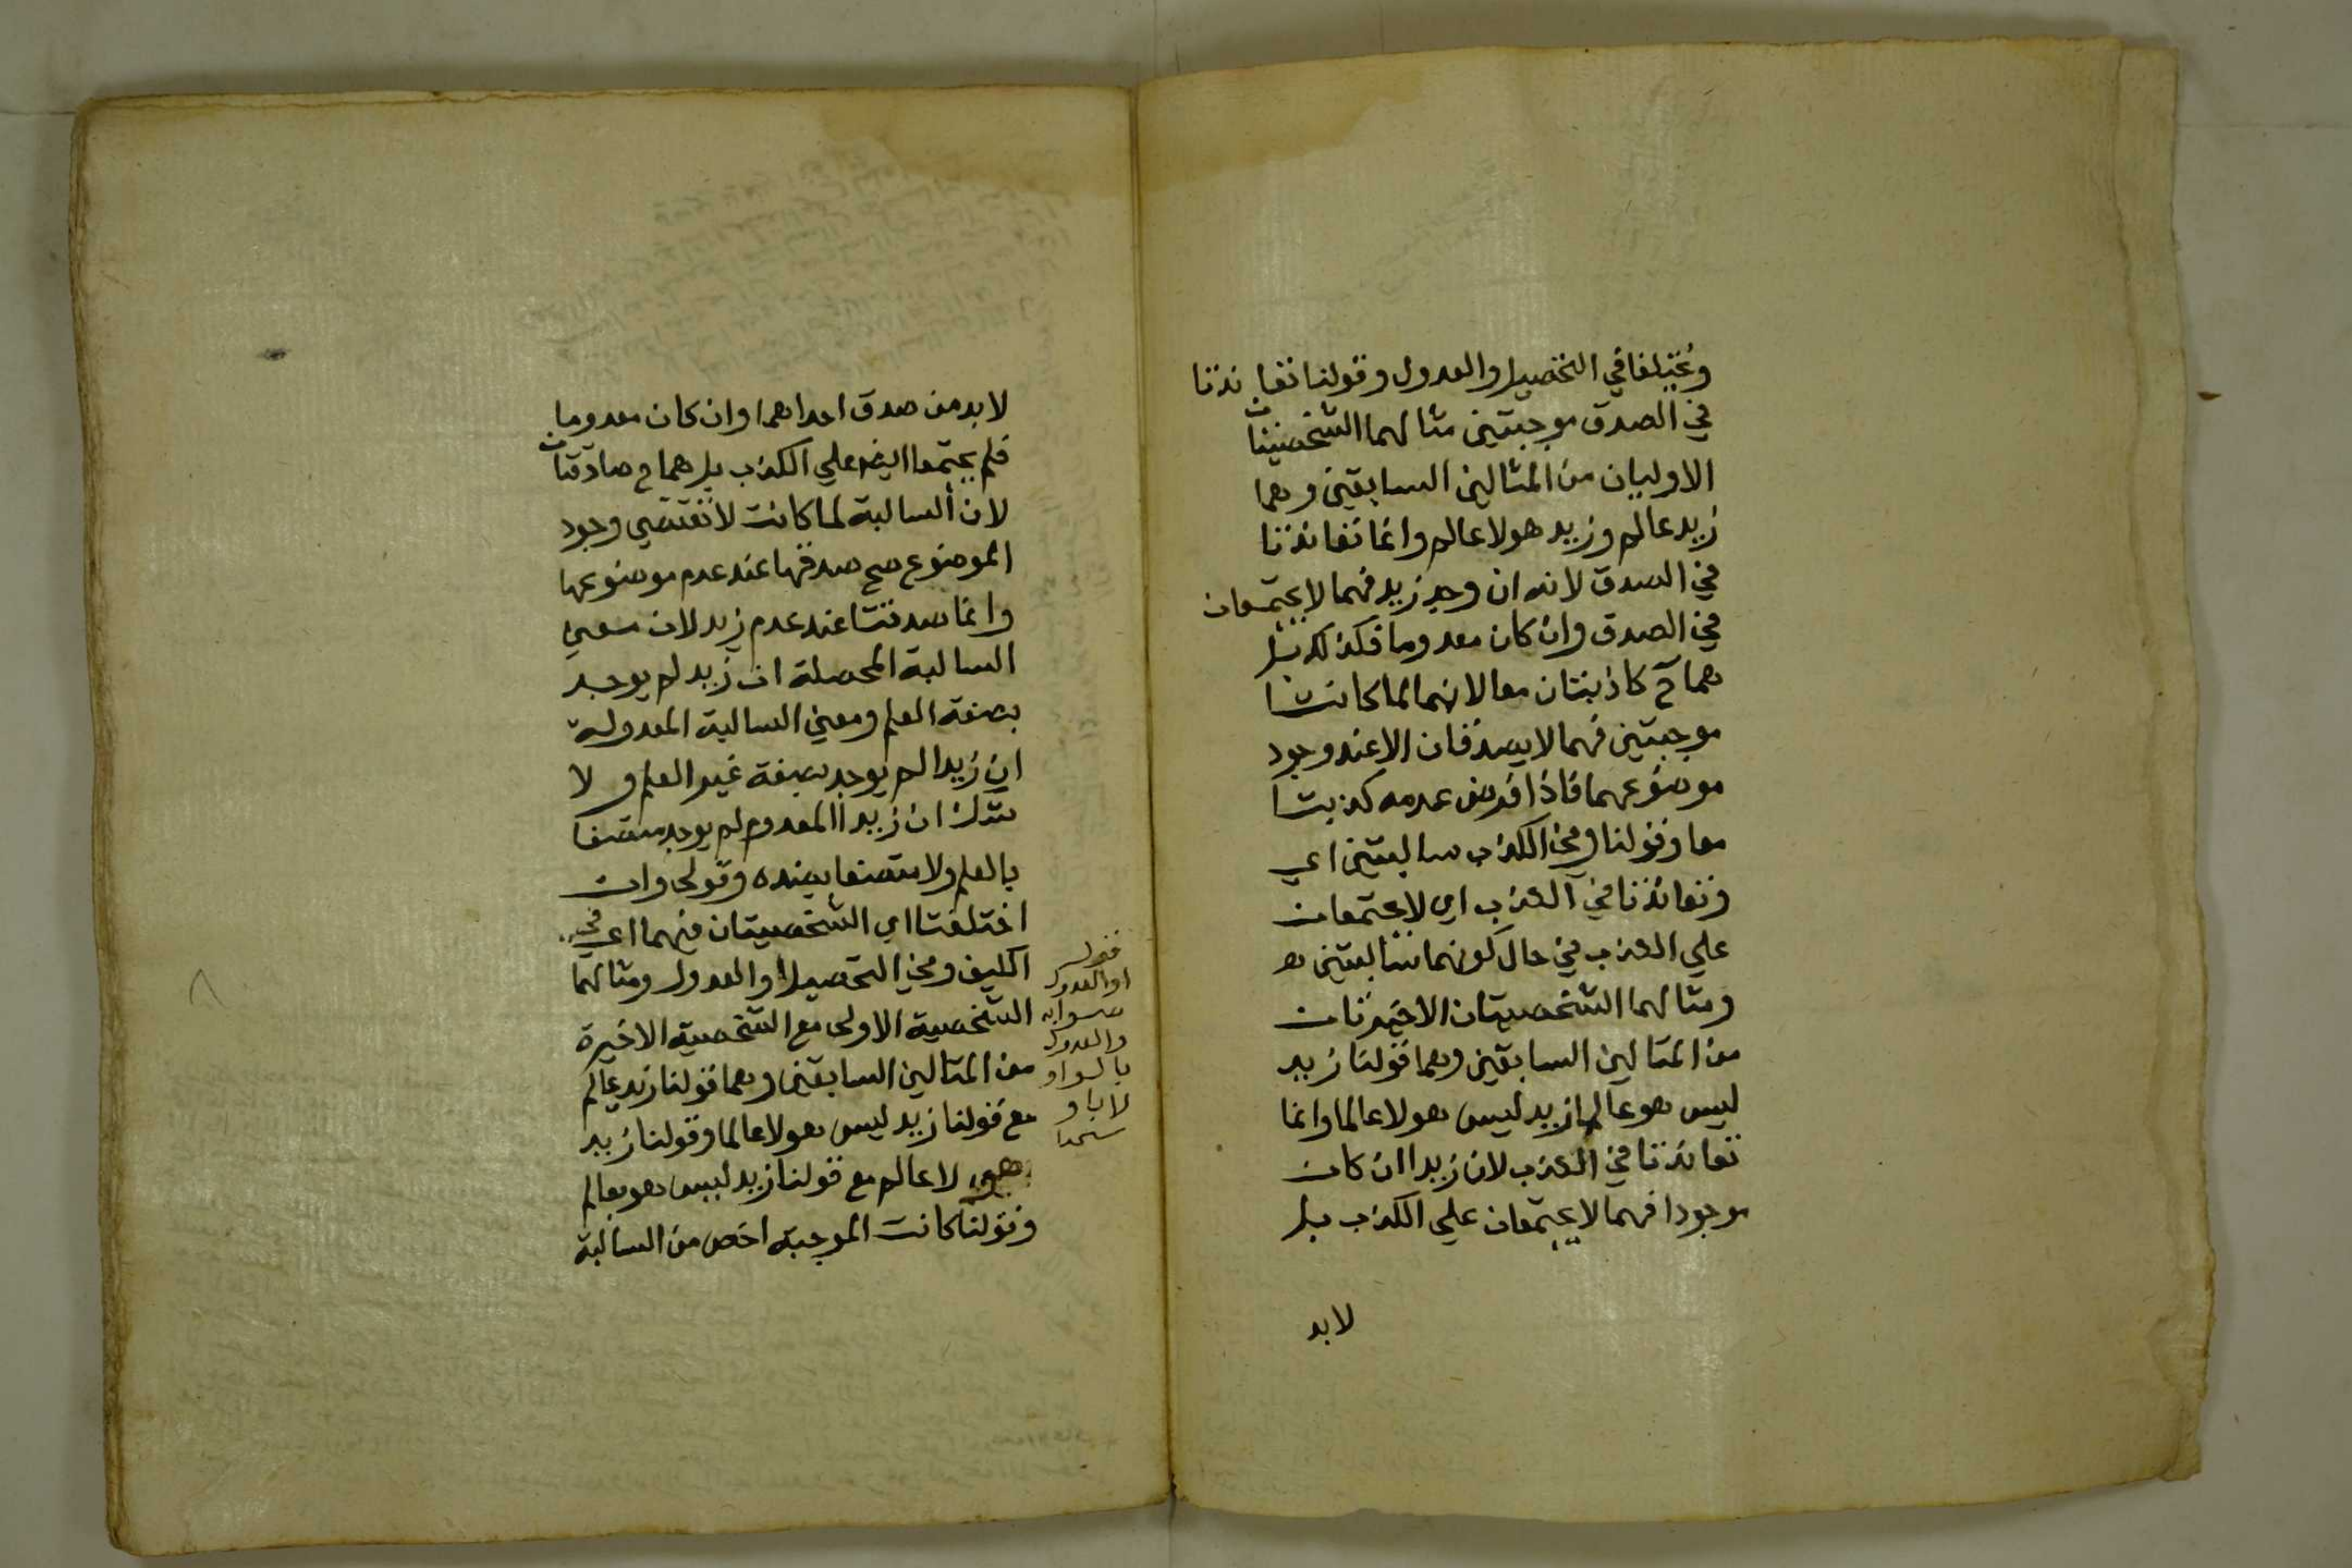 ويختلفا في التحصيل والعدول وقولنا تعاندتا
في الصدق موجبتين مثالهما الشخصيتان
الاوليان من المثالين السابقين وهما
زيد عالم وزيد هو لا عالم وانما تعاندتا
في الصدق لانه ان وجد زيد فهما لا يجتمعان
في الصدق وان كان معدوما فكذلك بل
هما ح كاذبتان معا لانهما لما كانتا
موجبتين فهما لا يصدقان الا عند وجود
موضوعهما فاذا فرض عدمه كذبتا
معا وقولنا وفي الكذب سالبتين اي
وتعاندتا في الكذب اي لا يجتمعان
علي الكذب في حال كونهما سالبتين
ومثالهما الشخصيتان الاخيرتان
من المثالين السابقين وهما قولنا زيد
ليس هو عالما زيد ليس هو لا عالما وانما
تعاندتا في الكذب لان زيدا ان كان
موجودا فهما لا يجتمعان علي الكذب بل
لابد
لابد من صدق احداهما وان كان معدوما
فلم يجتمعا ايضا علي الكذب بل هما ح صادقتان
لان السالبة لما كانت لا تقتضي وجود
الموضوع صح صدقها عند عدم موضوعها
وانما صدقتا عند عدم زيد لان معني
السالبة المحصلة ان زيد لم يوجد
بصفة العلم ومعني السالبة المعدولة
ان زيدا لم يوجد بصفة غير العلم ولا
شك ان زيدا المعدوم لم يوجد متصفا
بالعلم ولا متصفا بضده وقولي وان
اختلفتا اي الشخصيتان فيهما اي في
الكيف وفي التحصيل او العدول ومثالهما
الشخصية الاولى مع الشخصية الاخيرة
من المثالين السابقين وهما قولنا زيد عالم
مع قولنا زيد ليس هو لا عالما وقولنا زيد
هو لا عالم مع قولنا زيد ليس هو بعالم
وقولنا كانت الموجبة اخص من السالبة
قوله
او العدول
صوابه
والعدول
بالواو
لا باو